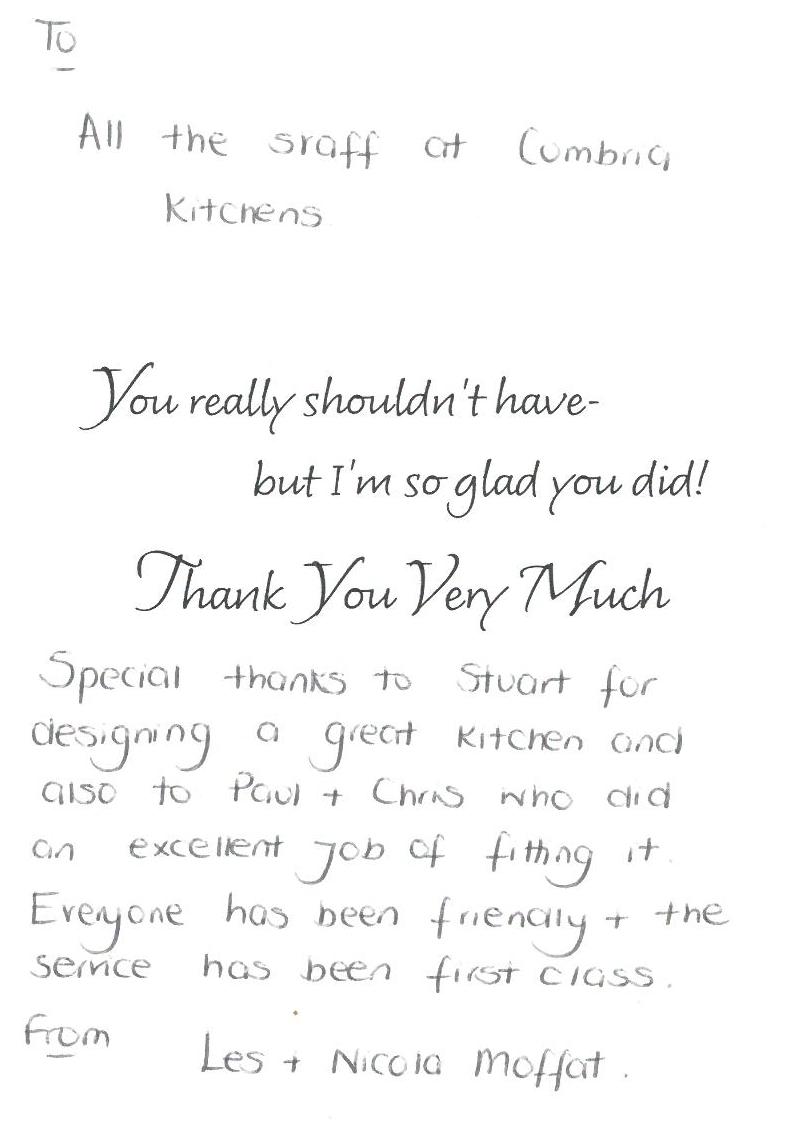 To
All the sraff at Cumbria
Kitchens
You really shouldn't have-
but I'm so glad you did!
Thank You Very Much
Special thanks to Stuart for
designing a great kitchen and
also to Paul + Chris who did
an excellent job of fitting it.
Everyone has been friendly + the
service has been first class.
From
Les + Nicola Moffat.